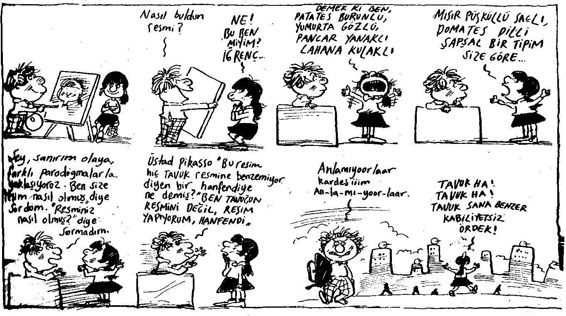 Nasıl buldun
resmi?
NE!
BU BEN
MİYİM?
İĞRENÇ...
DEMEK Kİ BEN,
PATATES BURUNLU,
YUMURTA GÖZLÜ,
PANCAR YANAKLI
LAHANA KULAKLI
MISIR PÜSKÜLLÜ SAÇLI,
DOMATES DİLLİ
ŞAPSAL BİR TİPİM
SİZE GÖRE...
Şey, sanırım olaya,
farklı paradigmalarla
yaklaşıyoruz. Ben size
nasıl olmuş diye
sordum. "Resminiz
nasıl olmuş?" diye
sormadım.
Üstad Pikasso "Bu resim
hiç TAVUK RESMİNE benzemiyor
diyen bir hanfendiye
ne demiş? "BEN TAVUĞUN
RESMİNİ DEĞİL, RESİM
YAPIYORUM, HANFENDİ,
Anlamıyoorlaar
kardeşiiim
An-la-mı-yoor-laar.
TAVUK HA!
TAVUK HA!
TAVUK SANA BENZER
KABİLİYETSİZ
ÖRDEK!